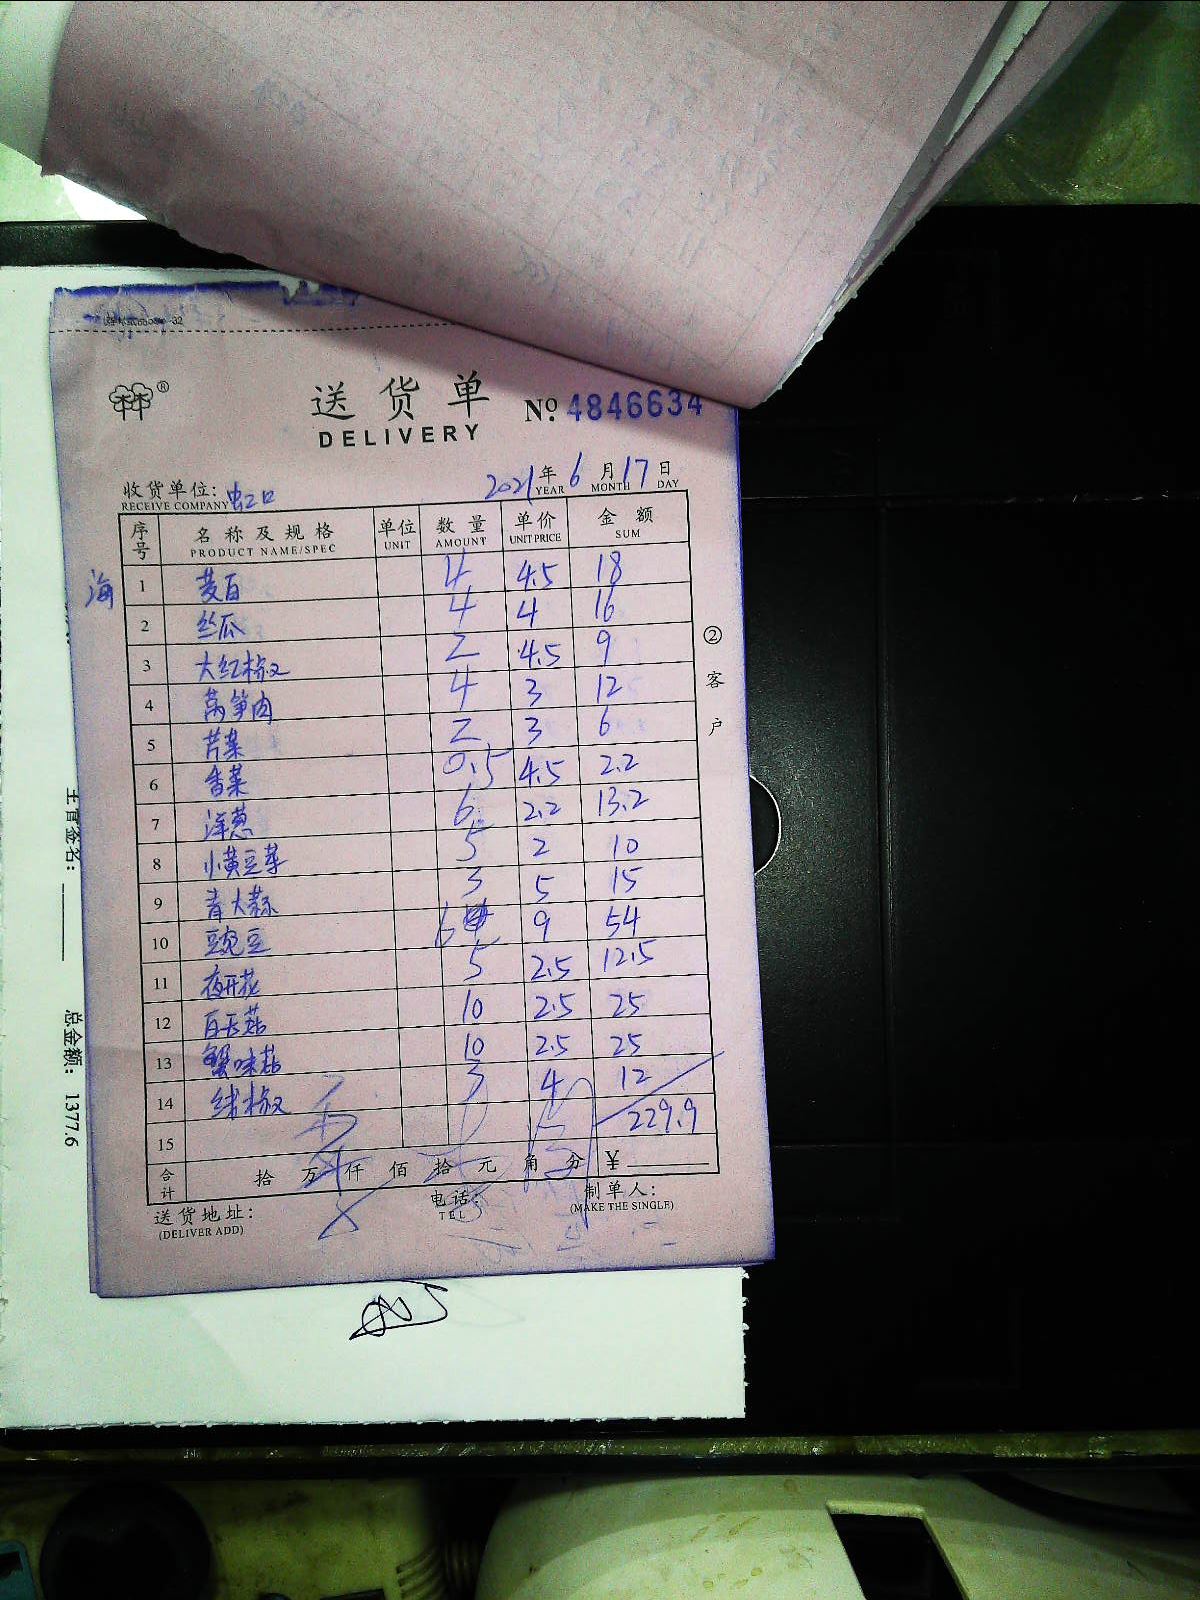 送货单 № 4846634
DELIVERY
2021年 6月 17日
YEAR MONTH DAY
收货单位: 虹口
RECEIVE COMPANY
序号 名称及规格 单位 数量 单价 金额
PRODUCT NAME/SPEC UNIT AMOUNT UNIT PRICE SUM
海
1 茭白 4 4.5 18
2 丝瓜 4 4 16
3 大红椒 2 4.5 9
4 莴笋肉 4 3 12
5 芹菜 2 3 6
6 香菜 0.5 4.5 2.2
7 洋葱 6 2.2 13.2
8 小黄豆芽 5 2 10
9 青大蒜 3 5 15
10 豌豆 6 9 54
11 夜开花 5 2.5 12.5
12 白玉菇 10 2.5 25
13 蟹味菇 10 2.5 25
14 线椒 3 4 12
15 229.9
合计 拾 万 仟 佰 拾 元 角 分 ¥
送货地址: 电话: 制单人:
(DELIVER ADD) TEL (MAKE THE SINGLE)
②客户
主管签名:
总金额: 1377.6